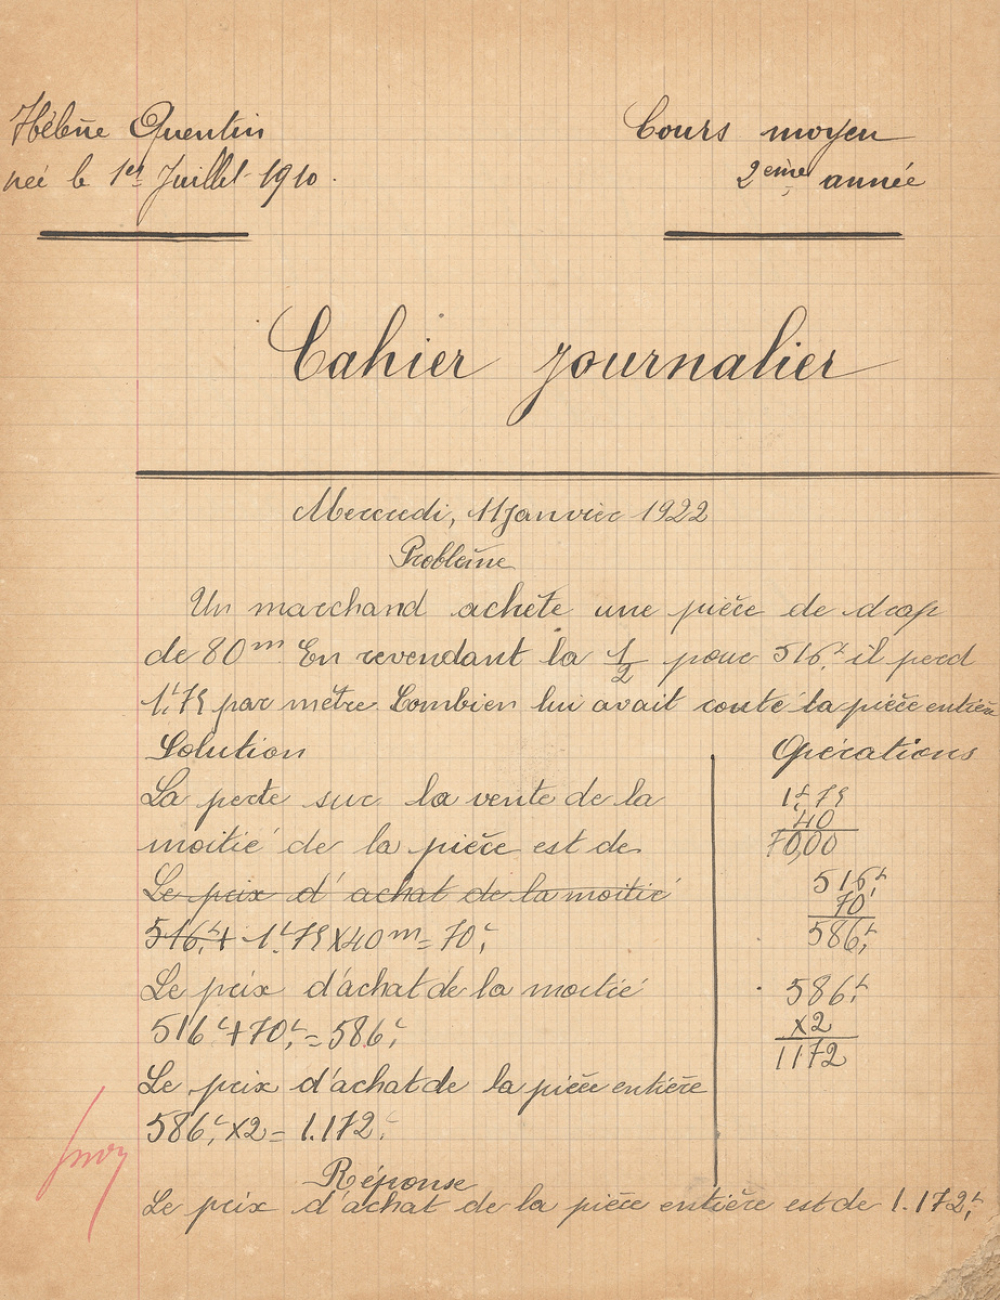 Hélène Quentin
née le 1er Juillet 1910.
Cours moyen
2ème année
Cahier journalier
Mercredi, 11 janvier 1922
Problème
Un marchand achète une pièce de drap
de 80m. En revendant la 1/2 pour 516f, il perd
1f,75 par mètre Combien lui avait coûté la pièce entière
Solution
Opérations
La perte sur la vente de la
moitié de la pièce est de
Le prix d'achat de la moitié
516f,+ 1f,75 X 40m = 70f,
Le prix d'achat de la moitié
516f + 70f, = 586f,
Le prix d'achat de la pièce entière
586f, X2 = 1.172f,
1f,75
40
70,00
516f,
70
586f,
586f,
X2
1172
Réponse
Le prix d'achat de la pièce entière est de 1.172f,